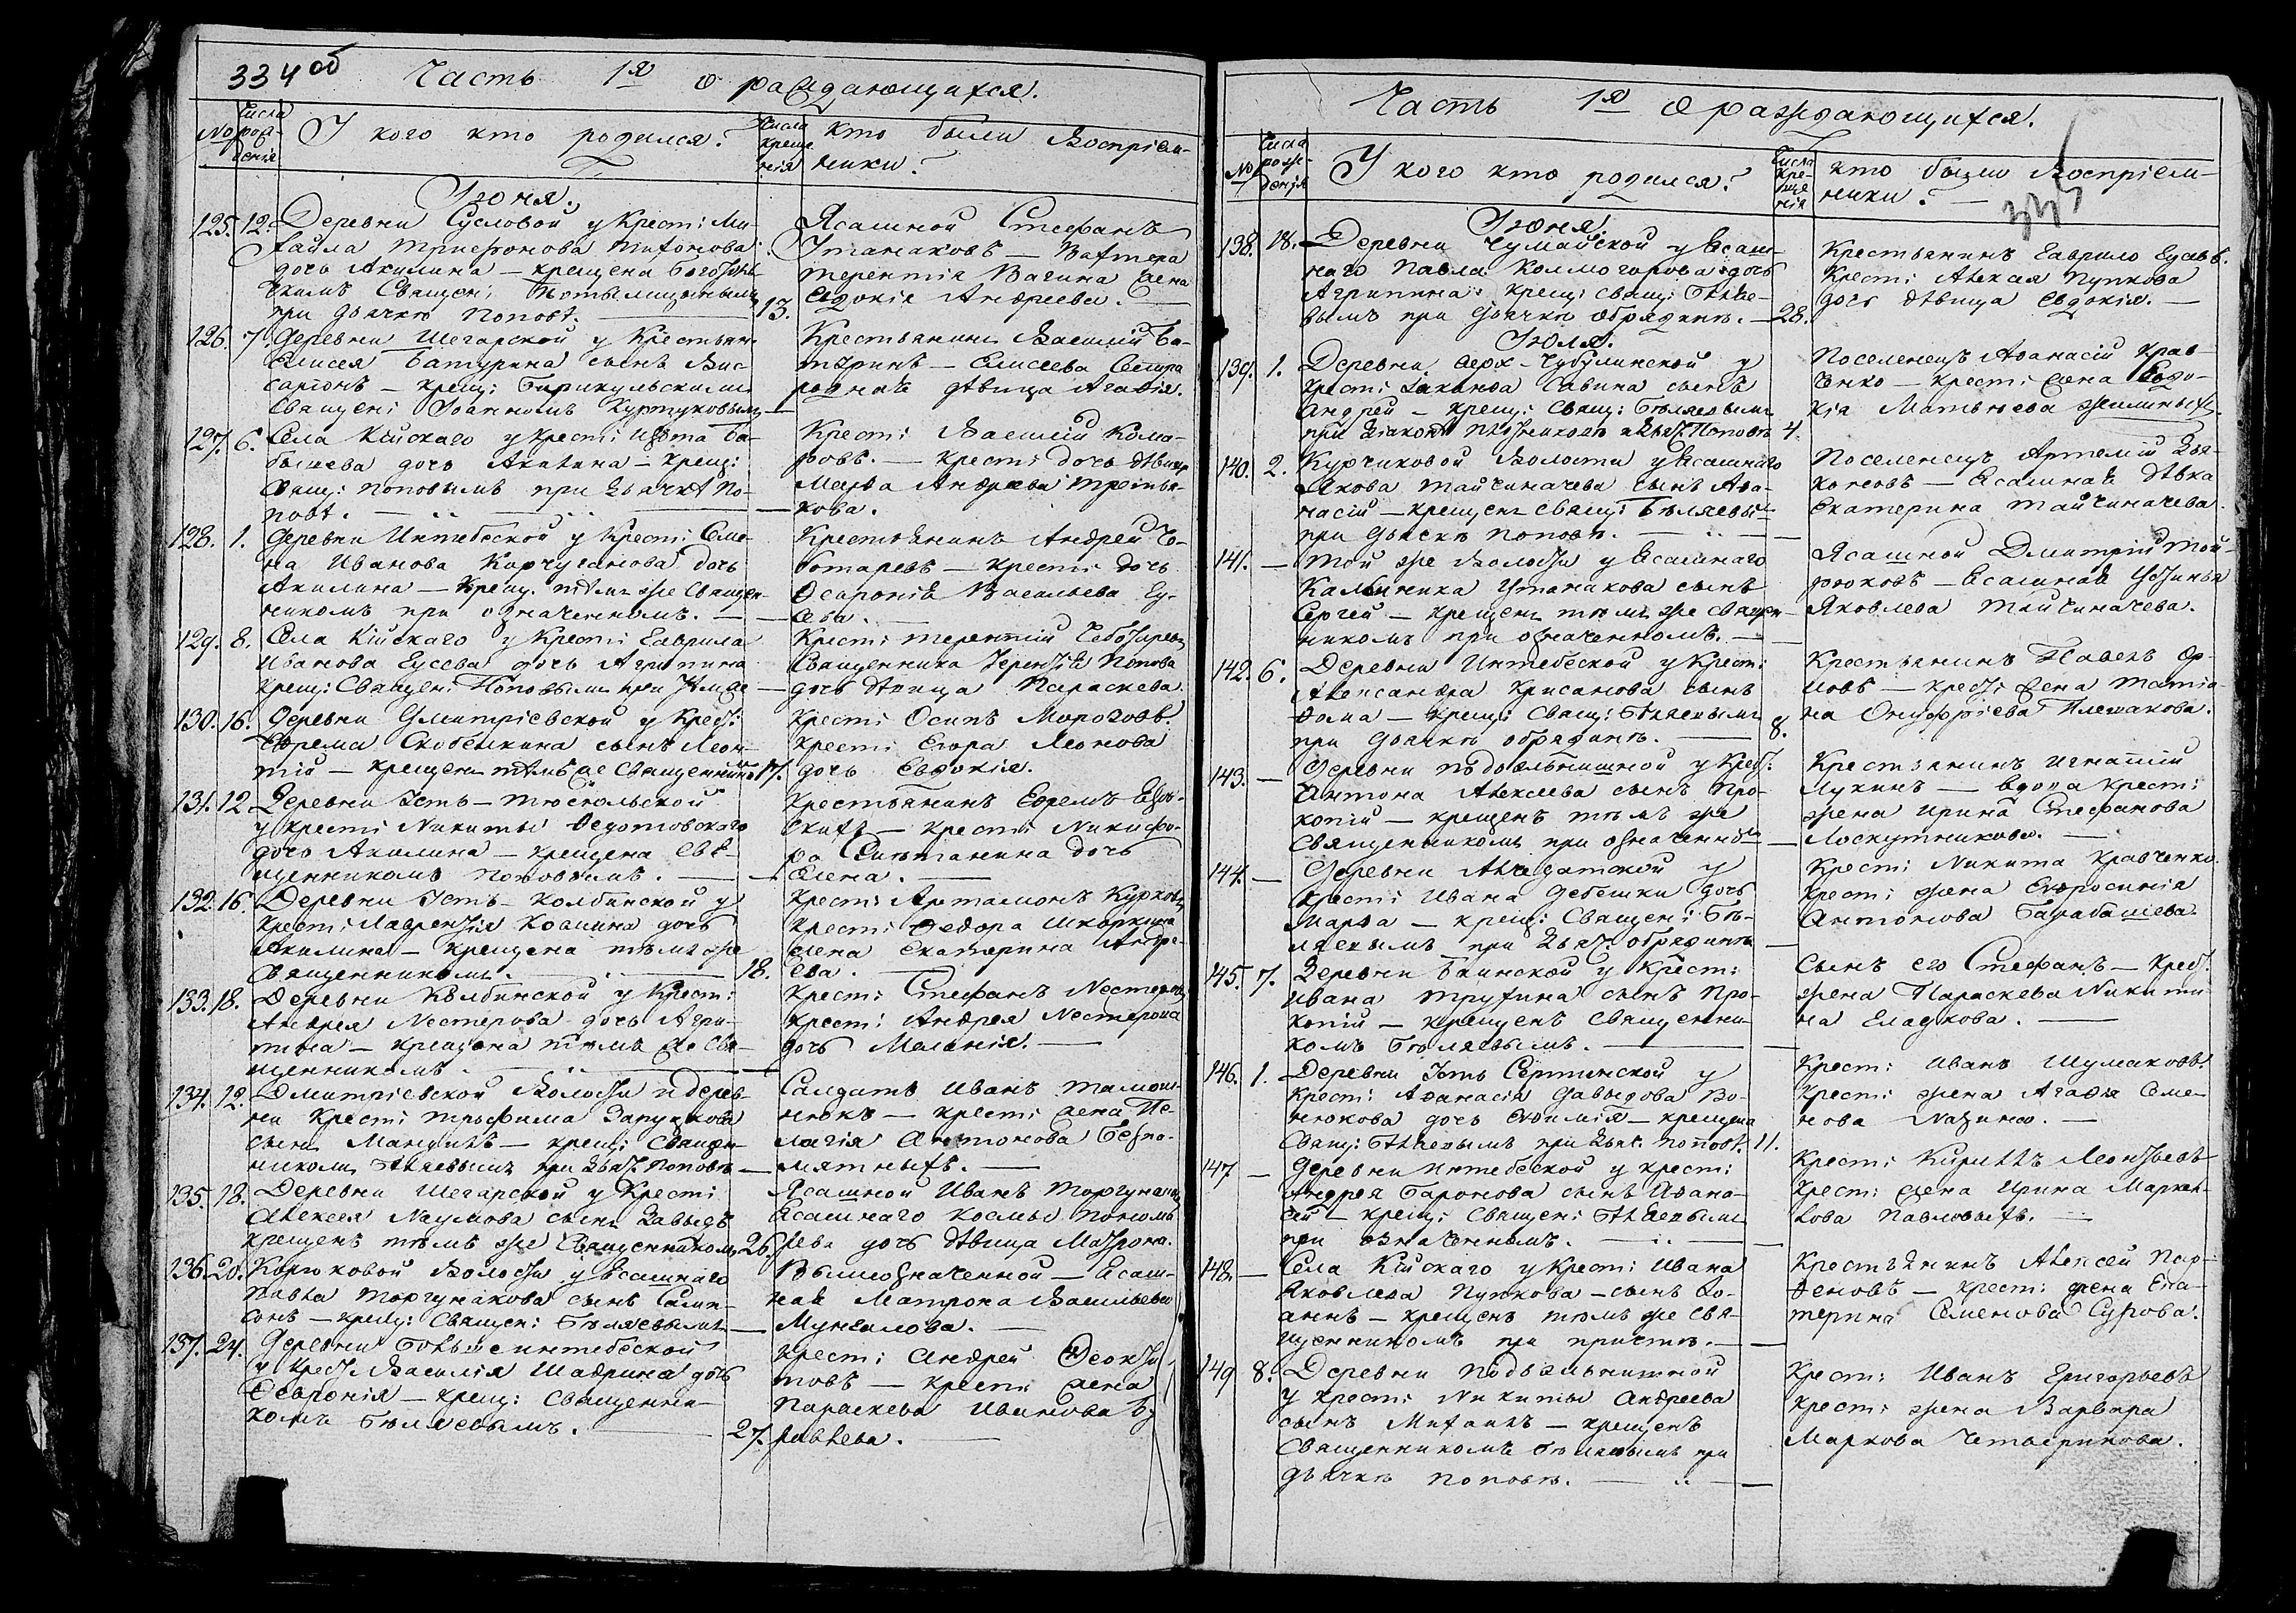 334 об Часть 1я о раждающихся.
№ Числа рождения У кого кто родился? Числа крещения Кто были восприемники?
Іюня.
125. 12. Деревни Сусловой у крест: Ми-
хайла Трифонова
дочь Акилина — крещена
Священ:
при дьячкѣ Поповѣ. — 13.
Ясашной Стефанъ
— Вахтера
Терентія Вагина жена
Евдокія Андреева. —
126. 7. Деревни Шегарской у крестьян:
Елисея Батурина сынъ Вис-
саріонъ — крещ: Барикульскимъ
Священ: Іоанномъ Куртуковымъ —
Крестьянинъ Василій Ба-
туринъ — Елисеева сестра
родная дѣвица Агафія.
127. 6. Села Кійскаго у крест: Изота Ба-
бышева дочь Акилина — крещ:
Свящ: Поповымъ при дьячкѣ По-
повѣ. —
Крест: Василій Кома-
ровъ. — крест: дочь дѣвица
Марѳа Андреева Третья-
кова.
128. 1. Деревни Интебеской у крест: Семе-
на Иванова Карчуганова дочь
Акилина — крещ. тѣмъ же священ-
никомъ при означенномъ. —
Крестьянинъ Андрей Че-
ботаревъ — крест: дочь
Февронія Васильева Гу-
сева. —
129. 8. Села Кійскаго у крест: Гаврила
Иванова Гусева дочь Агрипина
крещ: Священ: Поповымъ при
Крест: Терентій Чеботаревъ
Священника Терентія Попова
дочь дѣвица Параскева.
130. 16. Деревни Дмитріевской у крест:
Ефрема Скобелкина сынъ Леон-
тій — крещенъ тѣмъ же священникомъ 17.
Крест: Осипъ Морозовъ.
крест: Егора Леонова
дочь Евдокія.
131. 12. Деревни Усть-Тюскольской
у крест: Никиты Федотовскаго
дочь Акилина — крещена Свя-
щенникомъ Поповымъ. —
Крестьянинъ Ефремъ
— крест: Никифо-
ра дочь
Елена. —
132. 16. Деревни Усть-Колбинской у
крест: Лаврентія Космина дочь
Акилина — крещена тѣмъ же
Священникомъ. — 18.
Крест: Артамонъ Курковъ
крест: Федора Шкаркина
жена Екатерина Андре-
ева. —
133. 18. Деревни Колбинской у крест:
Андрея Нестерова дочь Агри-
пина — крещена тѣмъ же Свя-
щенникомъ. —
Крест: Стефанъ Нестеровъ
крест: Андрея Нестерова
дочь Меланія. —
134. 12. Дмитріевской волости и дерев-
ни крест: Трофима Зарубкова
сынъ Мануилъ — крещ: Священ-
никомъ Бѣляевымъ при дьяч: Поповѣ —
Салдатъ Иванъ
— крест: жена Пе-
лагія Антонова Безпа-
мятныхъ. —
135. 18. Деревни Шегарской у крест:
Алексея Наумова сынъ Давыдъ
крещенъ тѣмъ же Священникомъ 26.
Ясашной Иванъ Торгунаковъ
Ясашнаго Космы Пономa
рева дочь дѣвица Матрона.
136. 20. Курчиковой волости у Ясашнаго
Павла Торгунакова сынъ Самп-
сонъ — крещ: Священ: Бѣляевымъ —
Вышеозначенной — Ясаш-
ная Матрона Васильева
Мунгалова. —
137. 24. Деревни Больше интебеской
у крест: Василія Шадрина дочь
Февронія — крещ: Священни-
комъ Бѣляевымъ. — 27.
Крест: Андрей Феокти
стовъ — крест: жена
Параскева Иванова Жу
равлева. —
Часть 1я о раждающихся.
335
№ Числа рожденія У кого кто родился? Числа крещенія Кто были воспріемники? —
Іюня.
138. 18. Деревни Чумайской у Ясаш-
наго Павла Колмогорова дочь
Агрипина: крещ: свящ: Бѣляе-
вымъ при дьячкѣ Обрядинѣ. — 28.
Крестьянинъ Гаврило Гусевъ.
Крест: Алексея Пупкова
дочь дѣвица Евдокія. —
Іюля.
139. 1. Деревни верх-Чебулинской у
крест: Іакинфа Савина сынъ
Андрей — крещ: Свящ: Бѣляевымъ
при Діаконѣ и дьяч: Поповѣ 4.
Поселенецъ Афанасій Крав-
ченко — крест: жена Евдо-
кія Матвеева
140. 2. Курчиковой Волости у Ясашнаго
Якова Тайчиначева сынъ Афа-
насій — крещенъ Свящ: Бѣляевымъ
при дьячкѣ Поповѣ. —
Поселенецъ Артемій Дья-
коновъ — Ясашная дѣвка
Екатерина Тайчиначева.
141. — Той же Волости у Ясашнаго
Калинника Утанакова сынъ
Сергей — крещенъ тѣмъ же священ-
никомъ при означенномъ. —
Ясашной Дмитрій
— Ясашная Устинья
Яковлева Тайчиначева.
142. 6. Деревни Интебеской у крест:
Александра Крисанова сынъ
Фома — крещ: Свящ: Бѣляевымъ
при дьячкѣ Обрядинѣ. — 8.
Крестьянинъ Павелъ Ор-
ловъ — крест: жена Татіа-
на Онуфріева Плешакова.
143. — Деревни Подъельнишной у крест:
Антона Алексеева сынъ Про-
копій — крещенъ тѣмъ же
Священникомъ при означенномъ —
Крестьянинъ Игнатій
Лукинъ — вдова крест:
жена Ирина Стефанова
Лоскутникова. —
144. — Деревни Алчедатской у
крест: Ивана Дебешки дочь
Марфа — крещ: Священ: Бѣ-
ляевымъ при дьяч: Обрядинѣ —
Крест: Никита Кравченко.
крест: жена Ефросинія
Антонова Барабашева.
145. 7. Деревни Баимской у крест:
Ивана Трухина сынъ Про-
копій — крещенъ Священни-
комъ Бѣляевымъ. —
Сынъ его Стефанъ — крест.
жена Параскева Никити
на Гладкова. —
146. 1. Деревни Усть Сертинской у
крест: Афанасія Давыдова Во-
нюкова дочь Ефимія — крещена
Свящ: Бѣляевымъ при дьяч. Поповѣ. 11.
Крест: Иванъ Шумаковъ.
Крест: жена Агафія Семе-
нова
147 — Деревни Интебеской у крест:
Андрея Баронова сынъ Афана-
сій — крещ: Священ: Бѣляевымъ
при означенномъ. —
Крест: Кирилъ Леонтьевъ
крест: жена Ирина Маркел-
лова Павловыхъ. —
148. — Села Кійскаго у крест: Ивана
Яковлева Пупкова — сынъ Іо-
аннъ — крещенъ тѣмъ же свя-
щенникомъ при причтѣ. —
Крестьянинъ Алексей Пар-
феновъ — крест: жена Ека-
терина Семенова Сурова.
149 8. Деревни Подъельнишной
у крест: Никиты Андреева
сынъ Михаилъ — крещенъ
Священникомъ Бѣляевымъ при
дьячкѣ Поповѣ. —
Крест: Иванъ Григорьевъ
крест: жена Варвара
Маркова Четверикова.